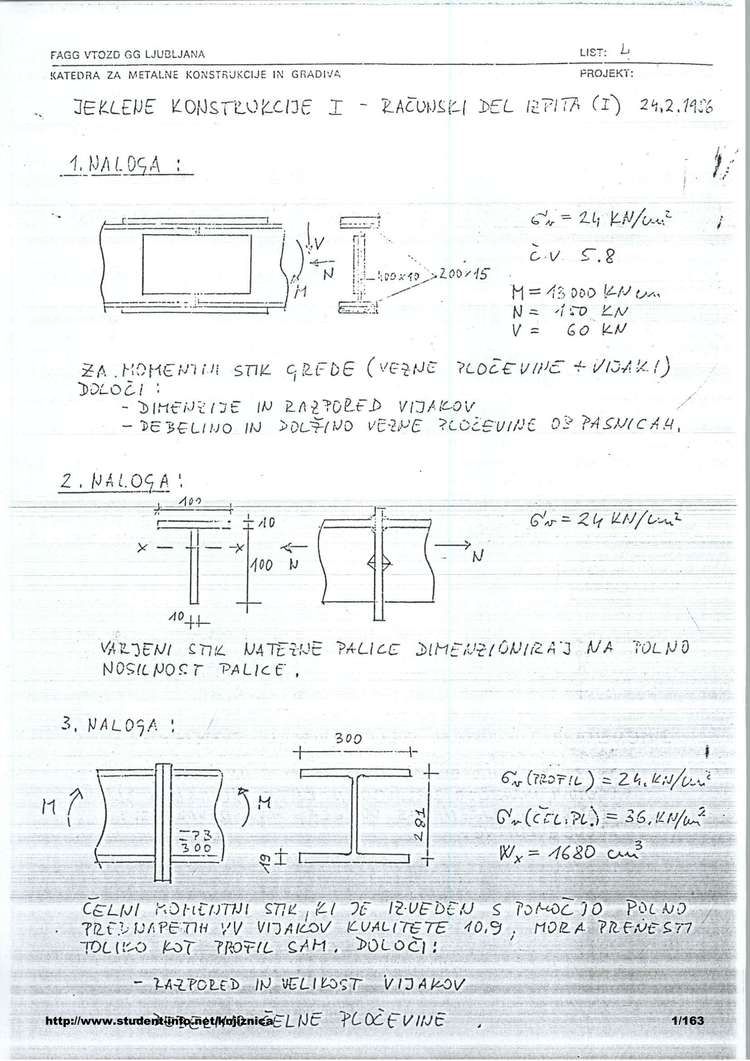 FAGG VTOZD GG LJUBLJANA
LIST: 4
KATEDRA ZA METALNE KONSTRUKCIJE IN GRADIVA
PROJEKT:
JEKLENE KONSTRUKCIJE I - RAČUNSKI DEL IZPITA (I) 24.2.1986
1. NALOGA :
σv = 24 KN/cm²
č.v. 5.8
V
N
M
400x10
200x15
M = 13000 KNcm
N = 150 KN
V = 60 KN
ZA MOMENTNI STIK GREDE (VEZNE PLOČEVINE + VIJAKI)
DOLOČI :
- DIMENZIJE IN RAZPORED VIJAKOV
- DEBELINO IN DOLŽINO VEZNE PLOČEVINE OB PASNICAH.
2. NALOGA :
100
10
σv = 24 KN/cm²
x
x
N
N
100
10
VARJENI STIK NATEZNE PALICE DIMENZIONIRAJ NA POLNO
NOSILNOST PALICE.
3. NALOGA :
300
σv (PROFIL) = 24. KN/cm²
M
M
σv (ČEL. PL.) = 36. KN/cm²
300
19
Wx = 1680 cm³
ČELNI MOMENTNI STIK, KI JE IZVEDEN S POMOČJO POLNO
PREDNAPETIH VV VIJAKOV KVALITETE 10.9, MORA PRENESTI
TOLIKO KOT PROFIL SAM. DOLOČI:
- RAZPORED IN VELIKOST VIJAKOV
ČELNE PLOČEVINE.
http://www.student-info.net/knjiznica
1/163